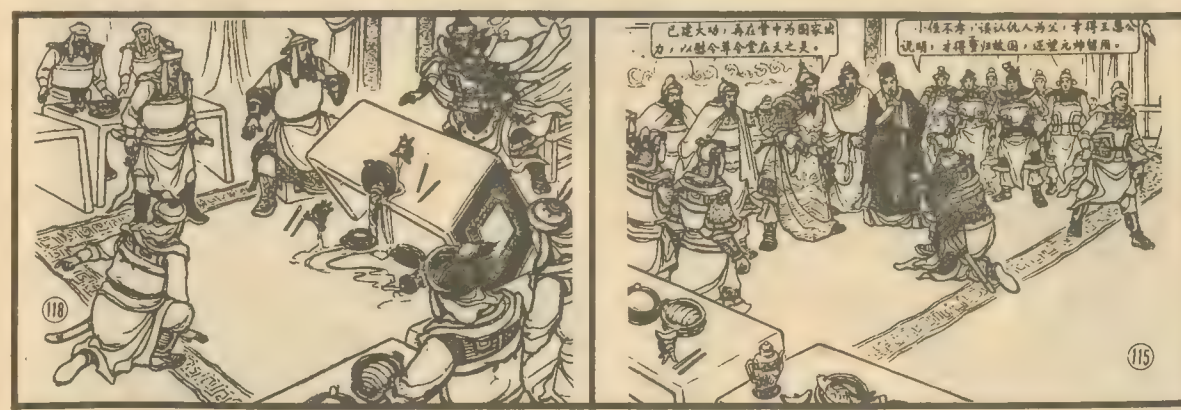 118
已建大功,再在营中为国家出
力,以慰令尊令堂在天之灵。
小侄不孝,误认仇人为父,幸得王恩公
说明,才得重归故国,还望元帅留用。
115